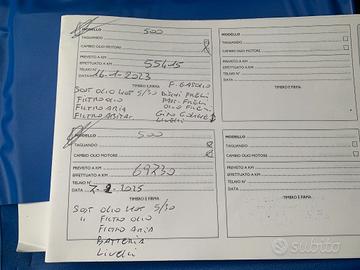 MODELLO 500
TAGLIANDO
CAMBIO OLIO MOTORE
PREVISTO A KM
EFFETTUATO A KM 55415
TELAIO N°
DATA 16-1-2023
TIMBRO E FIRMA
F. GASOLIO
SOST OLIO MOT 5/30
FILTRO OLIO
FILTRO ARIA
FILTRO ABITAC.
LIVELLI
MODELLO
TAGLIANDO
CAMBIO OLIO MOTORE
PREVISTO A KM
EFFETTUATO A KM
TELAIO N°
DATA
TIMBRO E FIRMA
MODELLO 500
TAGLIANDO
CAMBIO OLIO MOTORE
PREVISTO A KM
EFFETTUATO A KM 69230
TELAIO N°
DATA
TIMBRO E FIRMA
SOST OLIO MOT 5/30
" FILTRO OLIO
FILTRO ARIA
BATTERIA
LIVELLI
MODELLO
TAGLIANDO
CAMBIO OLIO MOTORE
PREVISTO A KM
EFFETTUATO A KM
TELAIO N°
DATA
TIMBRO E FIRMA
subito